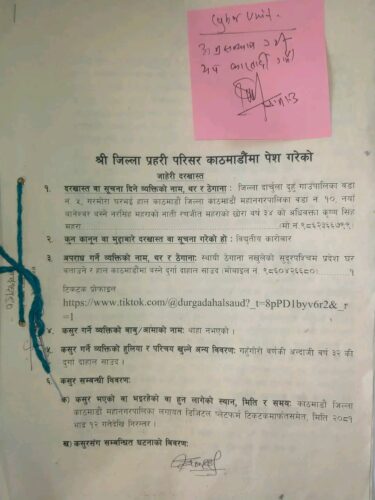 Cyber Unit.
श्री जिल्ला प्रहरी परिसर काठमाडौंमा पेश गरेको
जाहेरी दरखास्त
१. दरखास्त वा सूचना दिने व्यक्तिको नाम, थर र ठेगाना : जिल्ला दार्चुला दुहुँ गाउँपालिका वडा
नं ५, गरमोरा घरभई हाल काठमाडौं जिल्ला काठमाडौं महानगरपालिका वडा न १०, नयाँ
वानेश्वर बस्ने नरसिंह महराको नाती रणजीत महराको छोरा वर्ष ३४ को अधिवक्ता कृष्ण सिंह
महरा (मो नं.९८६२३६६७९९)
२. कुन कानुन वा मुद्दाबारे दरखास्त वा सूचना गरेको हो : विद्युतीय कारोबार
३. अपराध गर्ने व्यक्तिको नाम, थर र ठेगाना: स्थायी ठेगाना नखुलेको सुदूरपश्चिम प्रदेश घर
बताउने र हाल काठमाडौंमा बस्ने दुर्गा दाहाल साउद (मोबाइल नं. ९८६०४२६६८०) १
टिकटक प्रोफाइल
https://www.tiktok.com/@durgadahalsaud?_t=8pPD1byv6r2&_r
=1
४. कसुर गर्ने व्यक्तिको बाबु/आमाको नाम: थाहा नभएको।
५. कसुर गर्ने व्यक्तिको हुलिया र परिचय खुल्ने अन्य विवरण: गहुँगोरी वर्णकी अन्दाजी वर्ष ३२ की
दुर्गा दाहाल साउद।
६. कसुर सम्बन्धी विवरण:
क) कसुर भएको वा भइरहेको वा हुन लागेको स्थान, मिति र समय: काठमाडौं जिल्ला
काठमाडौं महानगरपालिका लगायत डिजिटल प्लेटफर्म टिकटकमार्फतसमेत, मिति २०८१
भाद्र १२ गतेदेखि निरन्तर।
ख) कसुरसंग सम्बन्धित घटनाको विवरण: